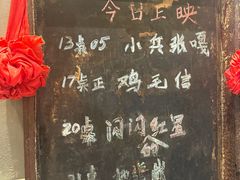 今日上映
13点05 小兵张嘎
17点正 鸡毛信
20点 闪闪红星